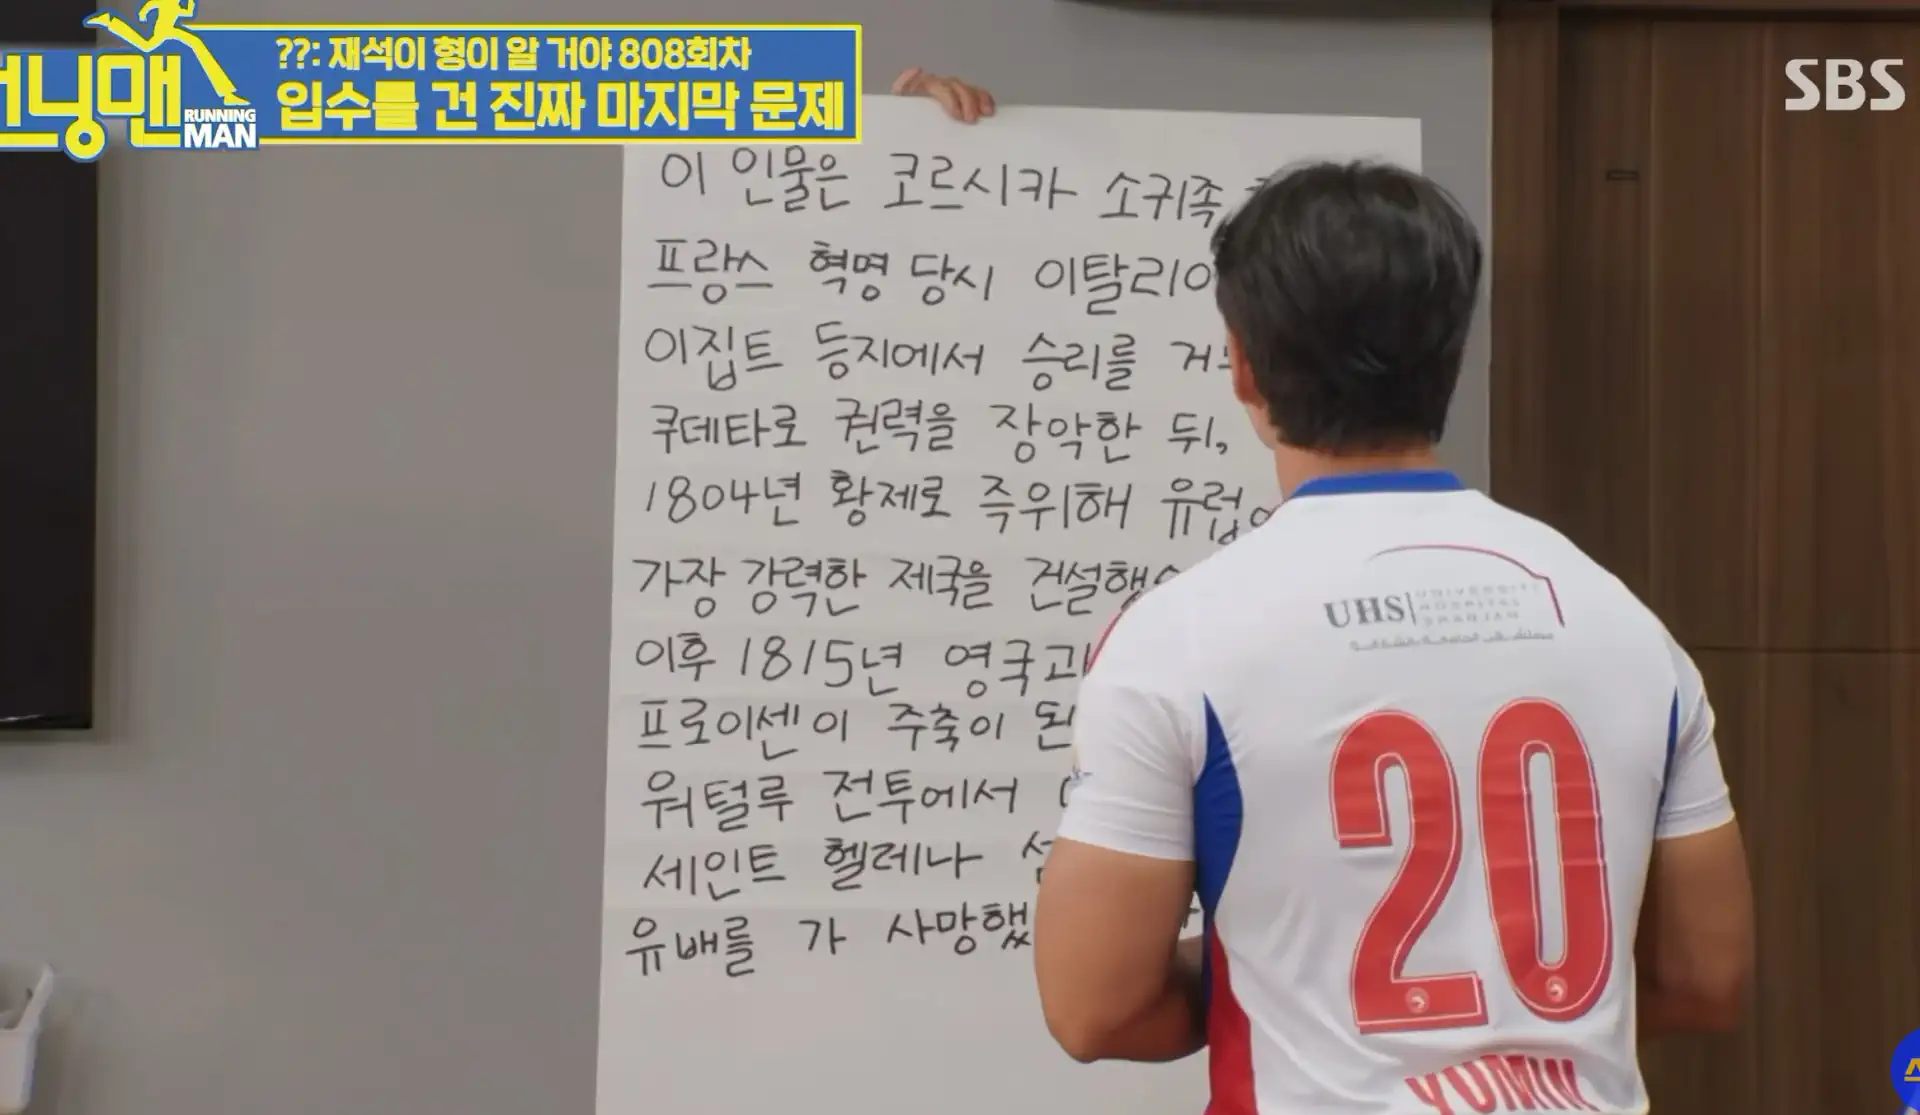 러닝맨
RUNNING
MAN
??: 재석이 형이 알 거야 808회차
입수를 건 진짜 마지막 문제
SBS
이 인물은 코르시카 소귀족
프랑스 혁명 당시 이탈리아
이집트 등지에서 승리를
쿠데타로 권력을 장악한 뒤,
1804년 황제로 즉위해 유럽
가장 강력한 제국을
이후 1815년 영국과
프로이센이 주축이 된
워털루 전투에서
세인트 헬레나
유배를 가
UHS
UNIVERSITY
HOSPITAL
SHARJAH
20